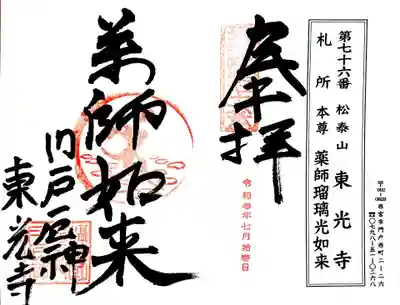 第七十六番 松泰山 東光寺
札所 本尊 薬師瑠璃光如来
〒662-0828 西宮市門戸西町二ー二六
☎〇七九八ー五一ー〇二六八
奉拝
令和 年七月拾 日
薬師如来
門戸厄神
東光寺